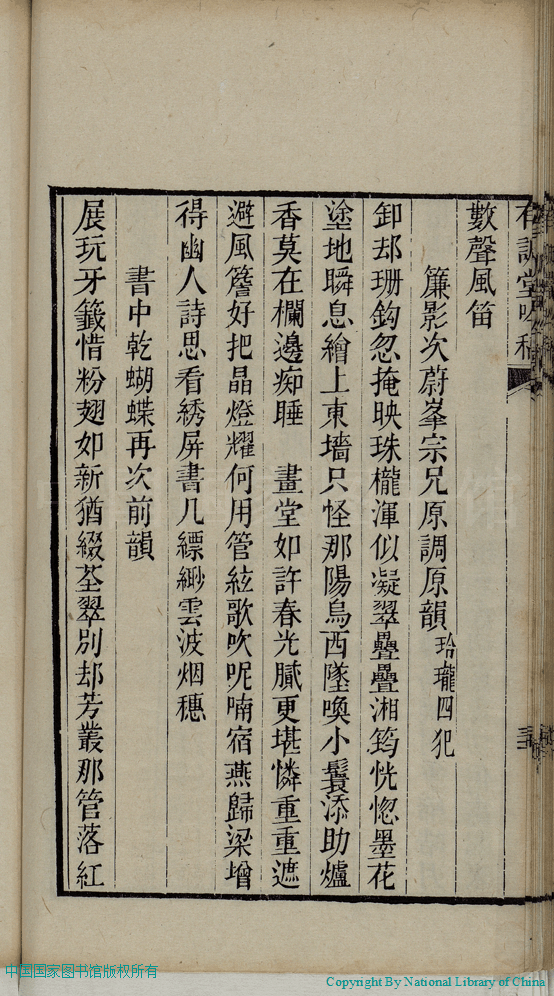 數聲風笛
簾影次蔚峯宗兄原調原韻 玲瓏四犯
卸却珊鈎忽掩映珠櫳渾似凝翠疊疊湘筠恍惚墨花
塗地瞬息繪上東墻只怪那陽烏西墜喚小鬟添助爐
香莫在欄邊痴睡　畫堂如許春光膩更堪憐重重遮
避風簷好把晶燈耀何用管絃歌吹呢喃宿燕歸梁增
得幽人詩思看綉屏書几縹緲雲波烟穗
書中乾蝴蝶再次前韻
展玩牙籤惜粉翅如新猶綴荃翠別却芳叢那管落紅
中国国家图书馆版权所有
Copyright By National Library of China